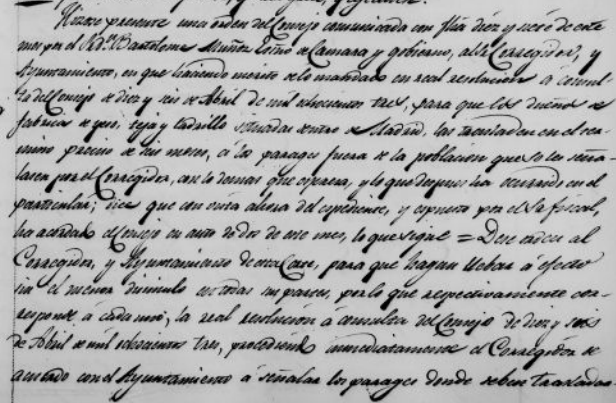 Hizose presente una orden del Consejo comunicada con fha diez y seis de este
mes por el Sr. Dn. Bartolome Muñoz Esño de Camara y gobierno, al Sr. Corregidor, y
Ayuntamiento, en que haciendo merito de lo mandado en real resolucion a consul-
ta del Consejo de diez y seis de Abril de mil ochocientos tres, para que los dueños de
fabricas de yeso, teja y ladrillo situadas dentro de Madrid, las trasladen en el ter-
mino preciso de seis meses, a los parages fuera de la poblacion que se les seña-
lasen por el Corregidor, con lo demas que espresa, y lo que despues ha ocurrido en el
particular; dice que con vista ahora del espediente, y espuesto por el Sr. fiscal,
ha acordado el Consejo en auto de dos de ese mes, lo que sigue = Dese orden al
Corregidor, y Ayuntamiento de esta Corte, para que hagan llebar a efecto
sin el menor disimulo en todas sus partes, por lo que respectivamente cor-
responde a cada uno, la real resolucion a consulta del Consejo de diez y seis
de Abril de mil ochocientos tres, procediendo inmediatamente el Corregidor de
acuerdo con el Ayuntamiento a señalar los parages donde deben trasladar-